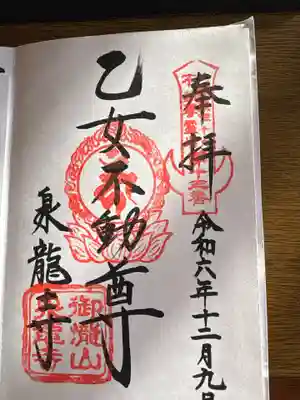 奉拝
令和六年十二月九日
乙女不動尊
泉龍寺
御瀧山
泉龍寺